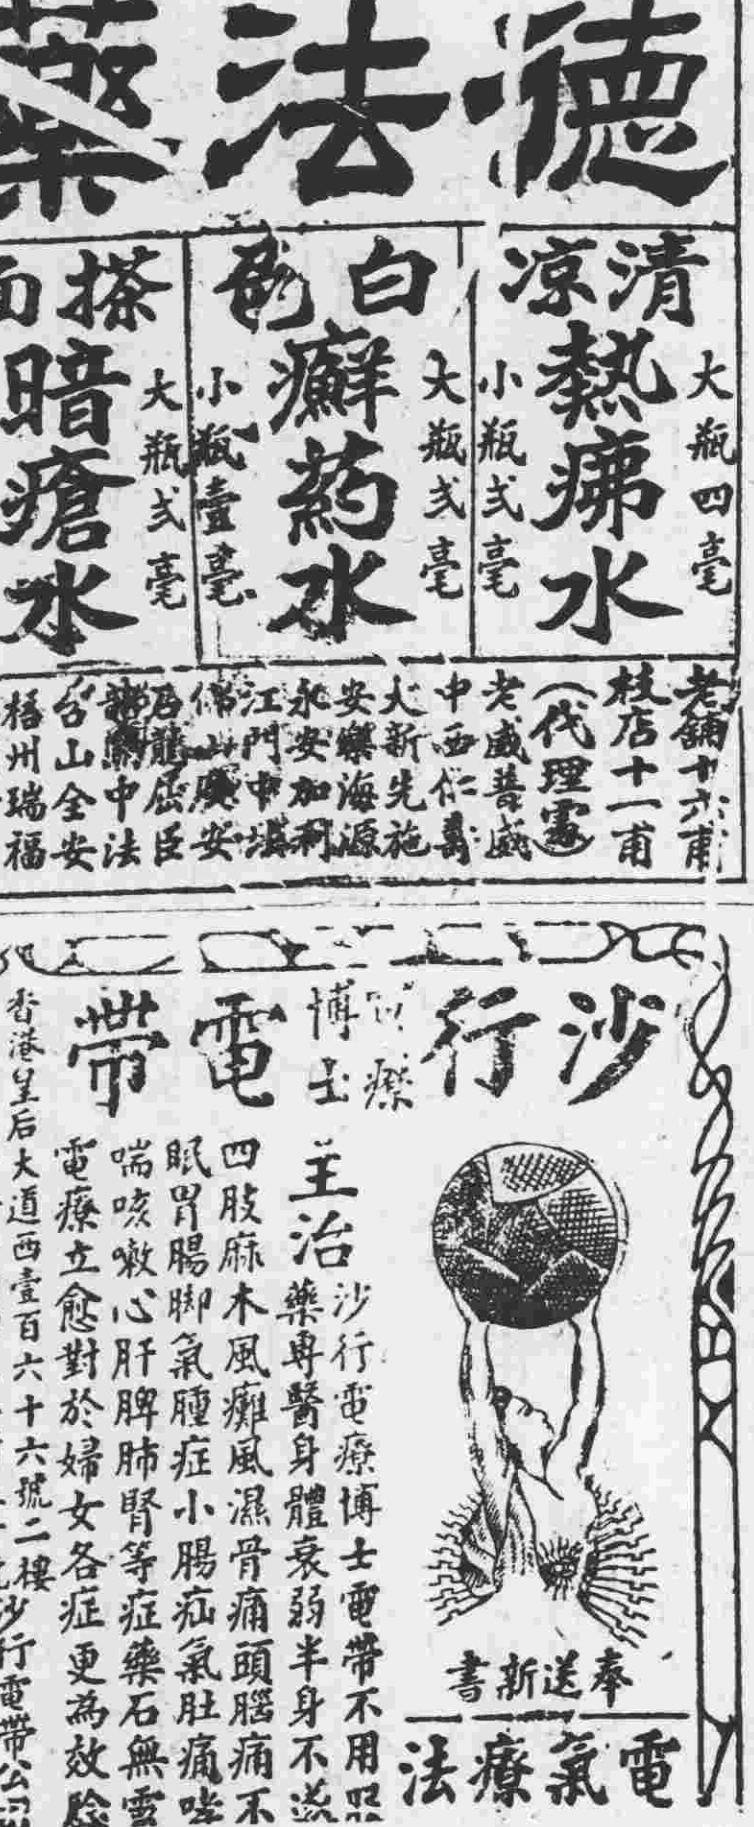 德法藥
清涼
熱疿水
大瓶四毫
小瓶弍毫
白
癬药水
大瓶弍毫
小瓶壹毫
搽面
暗瘡水
大瓶弍毫
老舖十六甫
枝店十一甫
（代理處）
老威普威
中西仁壽
大新先施
安樂海源
永安加利
江門中
佛山廣安
石龍屈臣
中法
台山全安
梧州瑞福
沙行
博士
電帶
奉送新書
電氣療法
主治
沙行電療博士電帶不用
藥專醫身體衰弱半身不遂
四肢麻木風癱風濕骨痛頭腦痛不
眠胃腸脚氣腫症小腸疝氣肚痛
喘咳嗽心肝脾肺腎等症藥石無靈
電療立愈對於婦女各症更為效驗
香港皇后大道西壹百六十六號二樓
沙行電帶公司